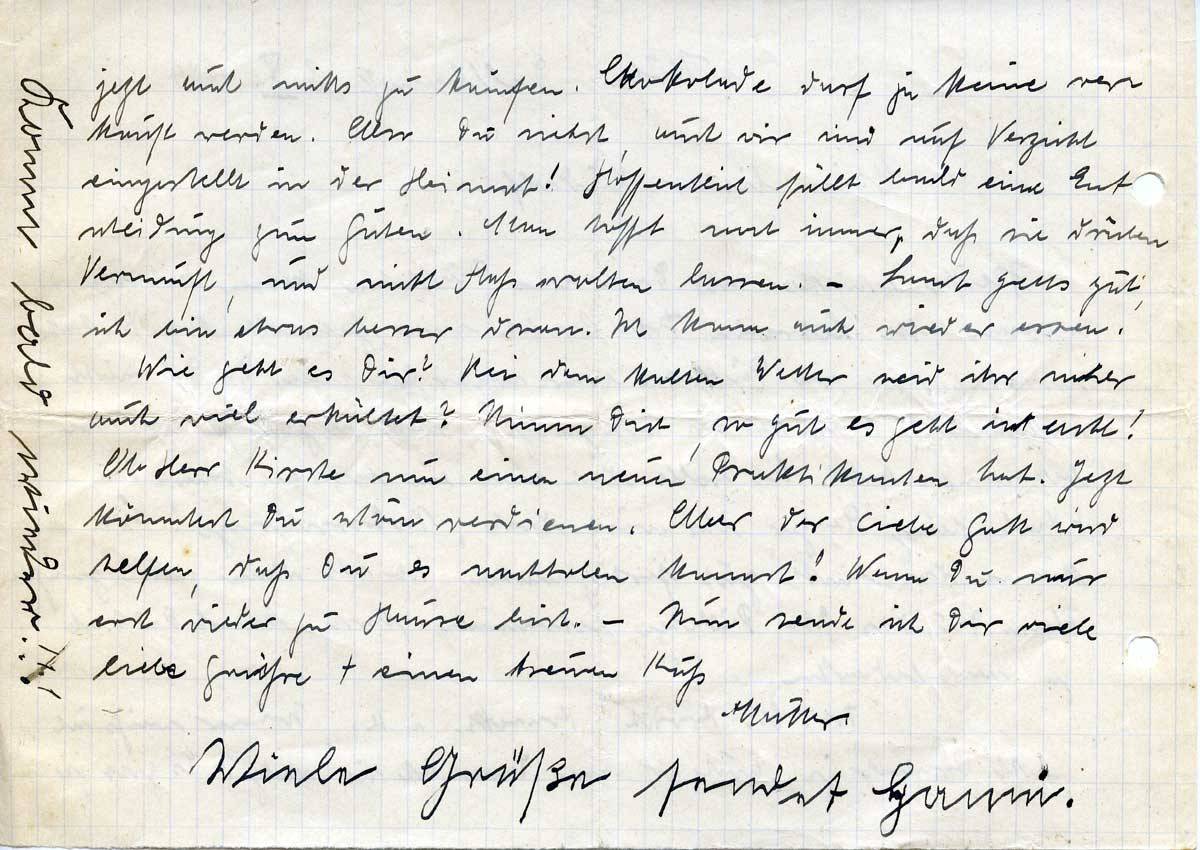 jetzt auch nichts zu kaufen. Schokolade darf ja keine ver
kauft werden. Aber Du siehst, auch wir sind auf Verzicht
eingestellt in der Heimat! Hoffentlich fällt bald eine Ent
scheidung zum Guten. Man hofft noch immer, daß sie drüben
Vernunft, und nicht Haß walten lassen. – Sonst gehts gut,
ich bin etwas besser dran. Ich kann auch wieder essen.
Wie geht es Dir? Bei dem kalten Wetter seid ihr sicher
auch viel erkältet? Nimm Dich, so gut es geht in acht!
Ob Herr Kirste nun einen neuen Praktikanten hat. Jetzt
könntest Du schön verdienen. Aber der liebe Gott wird
helfen, daß Du es nachholen kannst! Wenn Du nur
erst wieder zu Hause bist. – Nun sende ich Dir viele
liebe Grüße + einen treuen Kuß
Mutter.
Viele Grüße sendet Hanni.
Komm bald wieder..